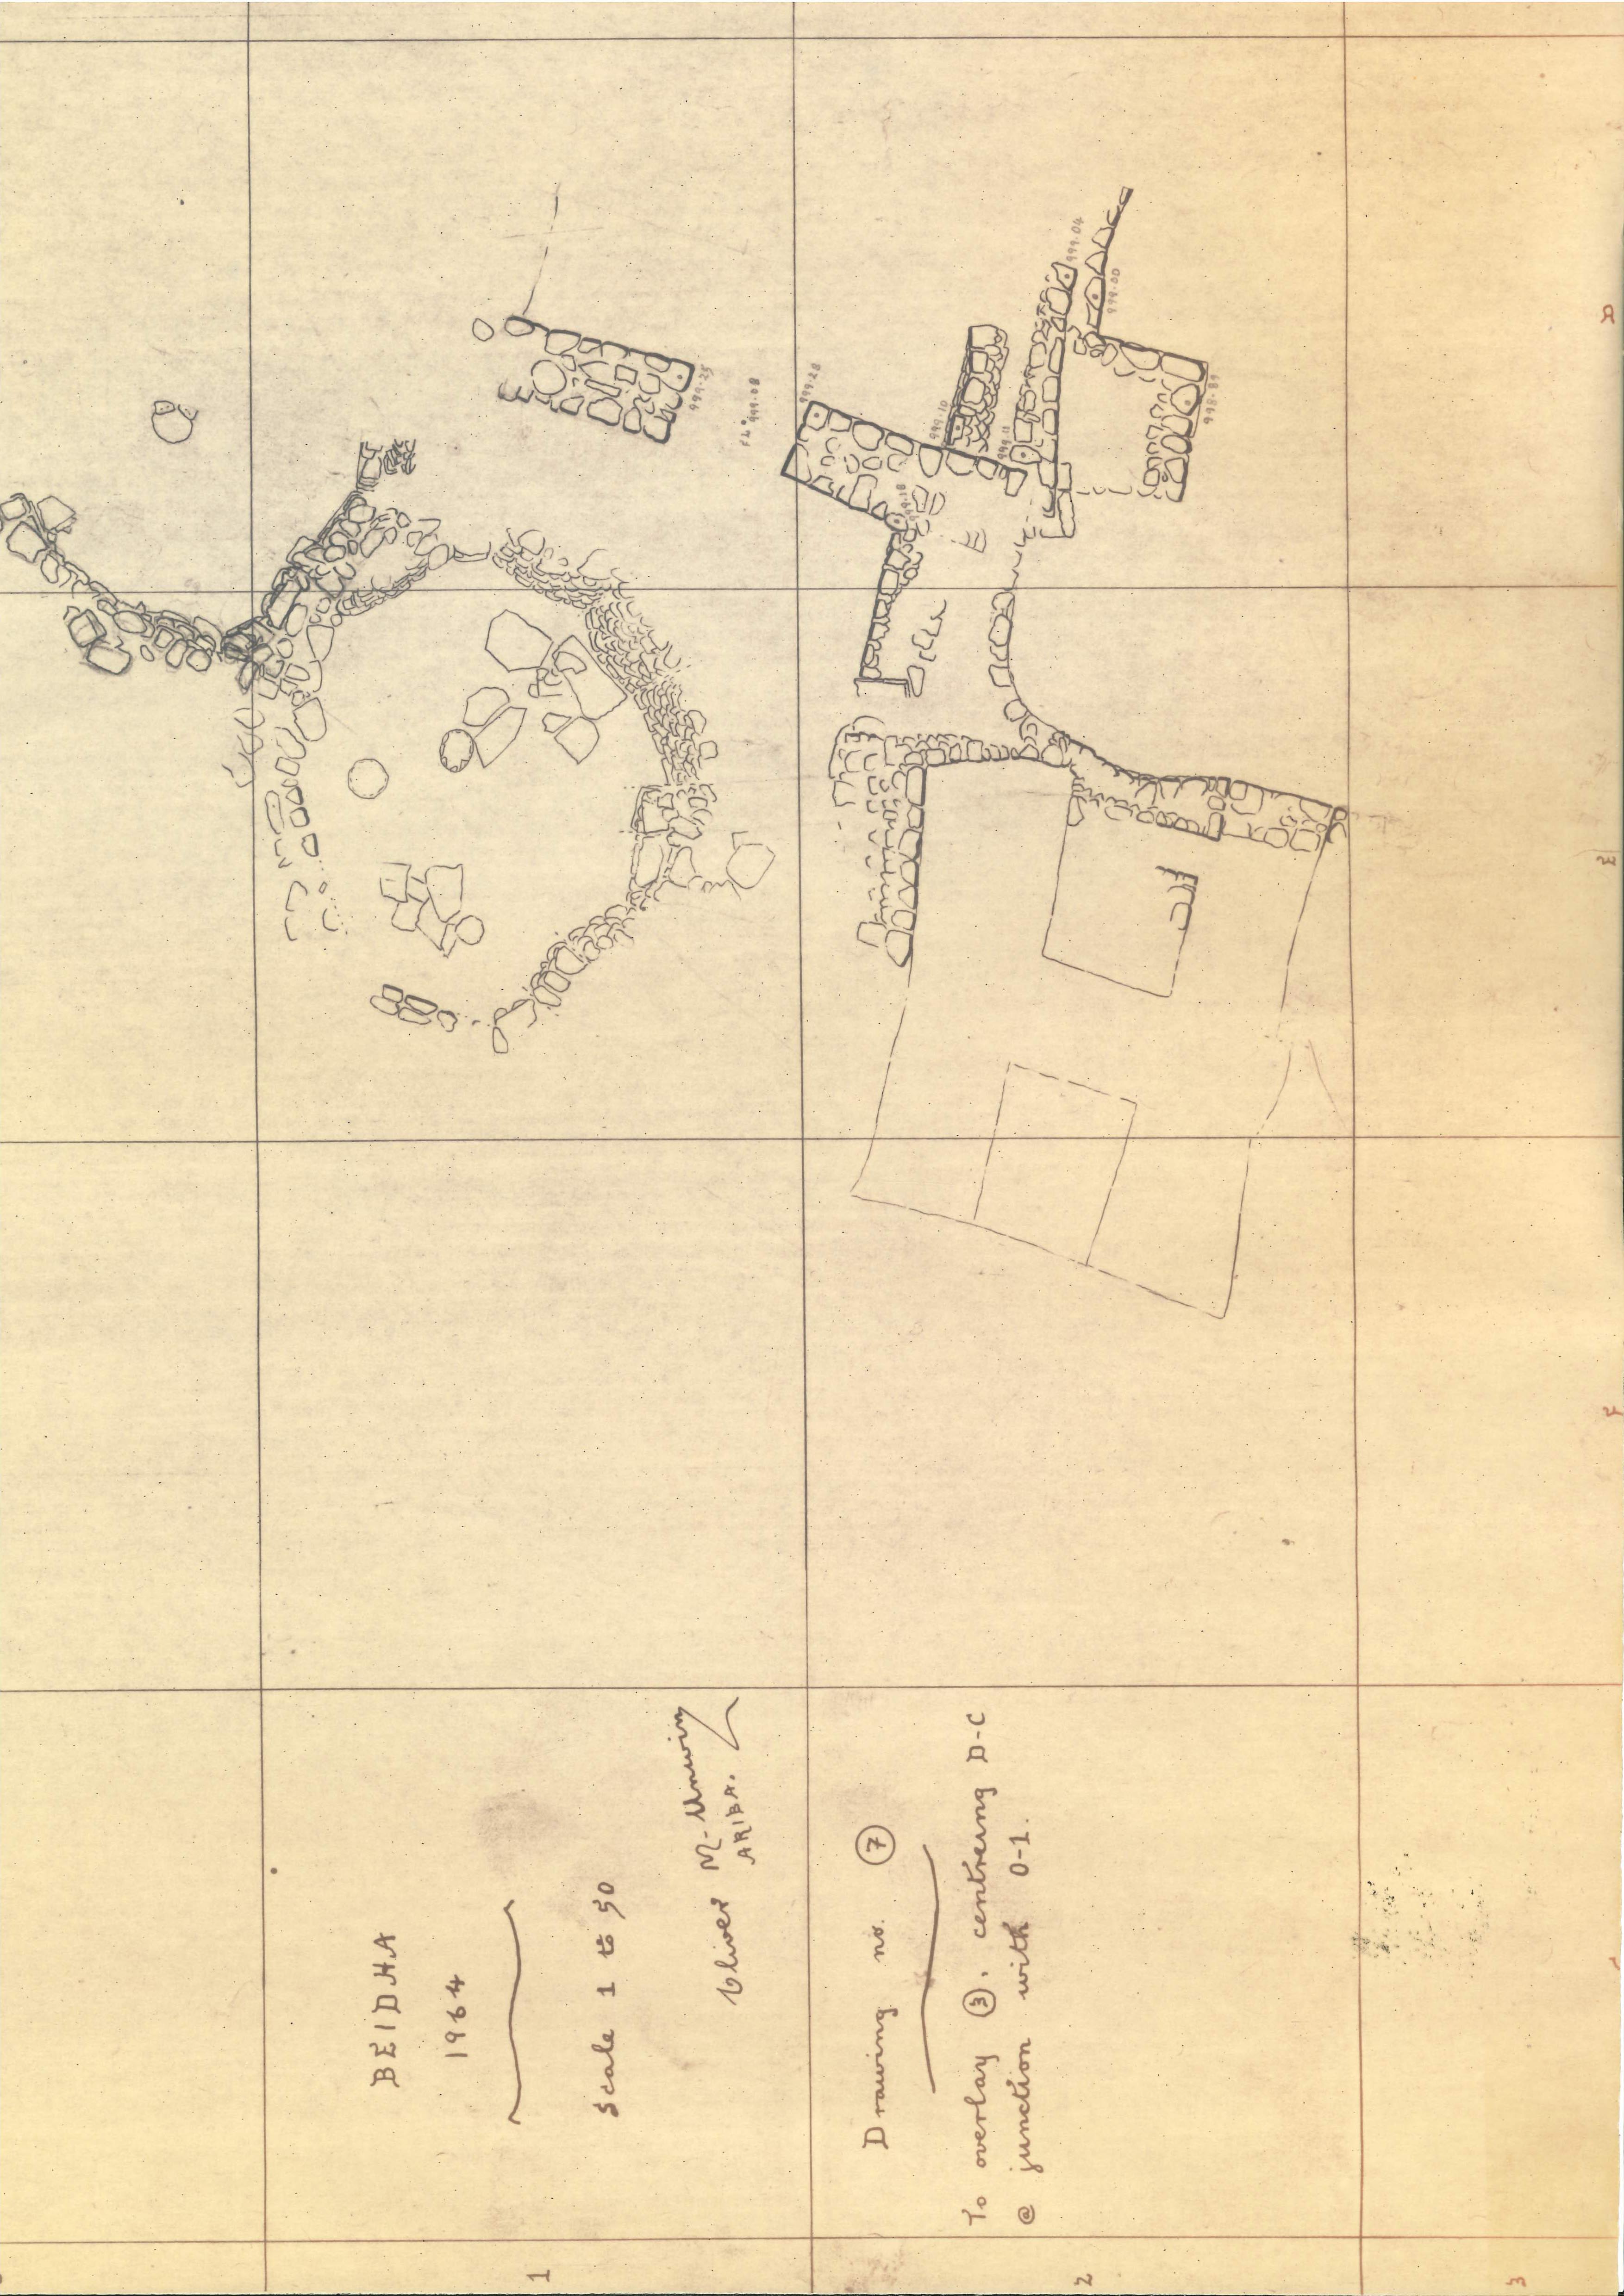 BEIDHA
1964
Scale 1 to 50
Oliver M. Unwin
ARIBA.
Drawing no. 7
To overlay 3. centreing D-C
@ junction with 0-1.
1
2
3
D
E
F
999.25
FL. 999.08
999.20
999.10
999.11
999.18
999.04
999.00
998.89